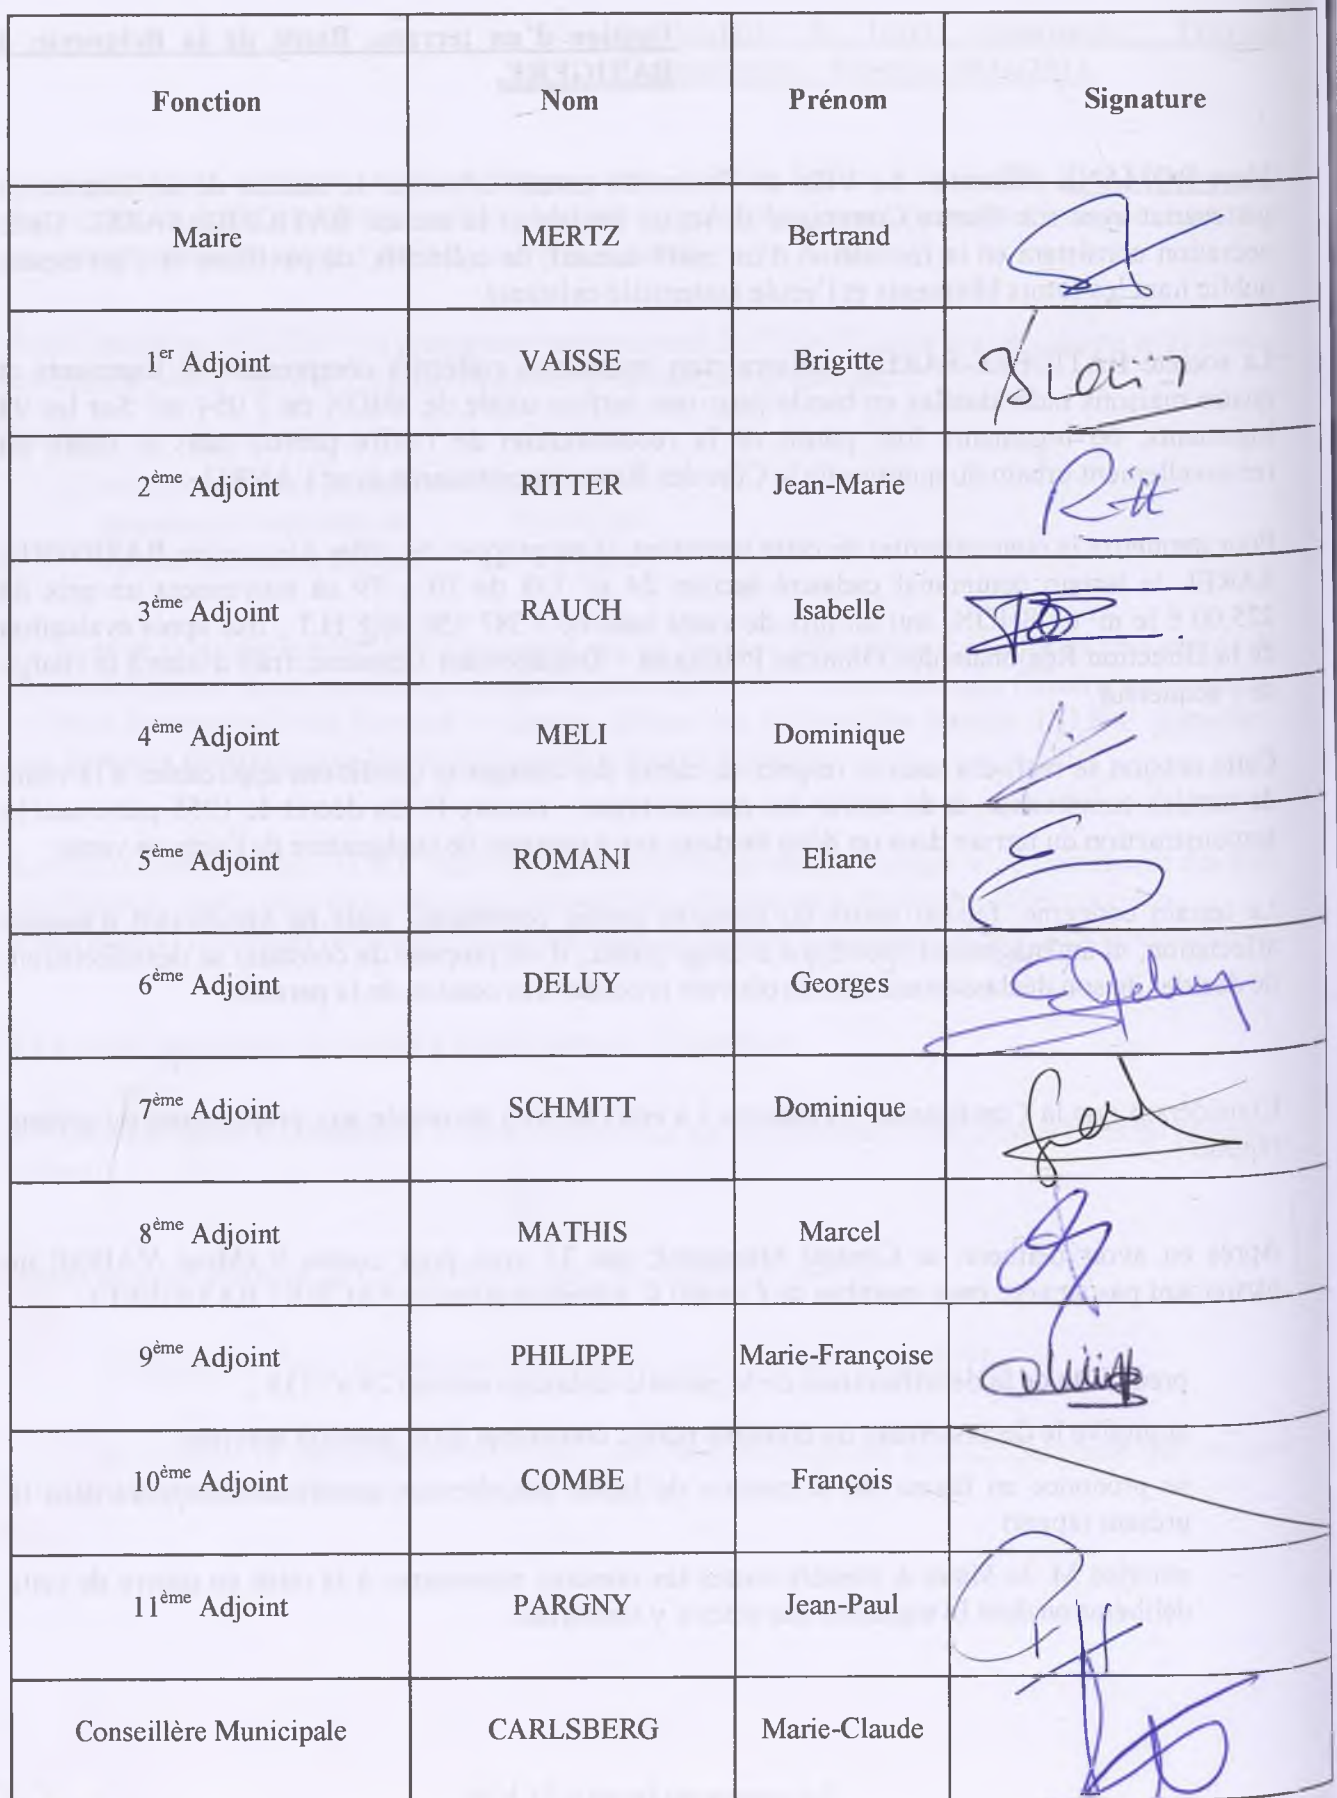 Fonction Nom Prénom Signature
Maire MERTZ Bertrand
1er Adjoint VAISSE Brigitte
2ème Adjoint RITTER Jean-Marie
3ème Adjoint RAUCH Isabelle
4ème Adjoint MELI Dominique
5ème Adjoint ROMANI Eliane
6ème Adjoint DELUY Georges
7ème Adjoint SCHMITT Dominique
8ème Adjoint MATHIS Marcel
9ème Adjoint PHILIPPE Marie-Françoise
10ème Adjoint COMBE François
11ème Adjoint PARGNY Jean-Paul
Conseillère Municipale CARLSBERG Marie-Claude